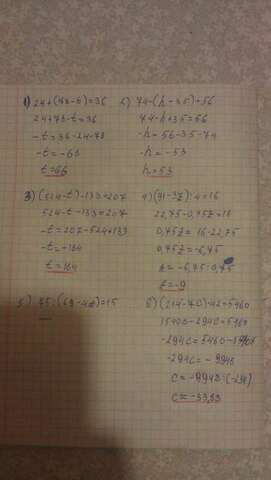 1) 24+(78-t)=36
24+78-t=36
-t=36-24-78
-t=-66
t=66
2) 74-(h-35)=56
74-h+35=56
-h=56-35-74
-h=-53
h=53
3) (524-t)-133=207
524-t-133=207
-t=207-524+133
-t=-184
t=184
4) (91-3z):4=16
22,75-0,75z=16
0,75z=16-22,75
0,75z=-6,75
z=-6,75:0,75
z=-9
5) 45:(69-4z)=15
6) (214-7c)·42=5460
-294c=-9948
c=-9948:(-294)
c=-33,83